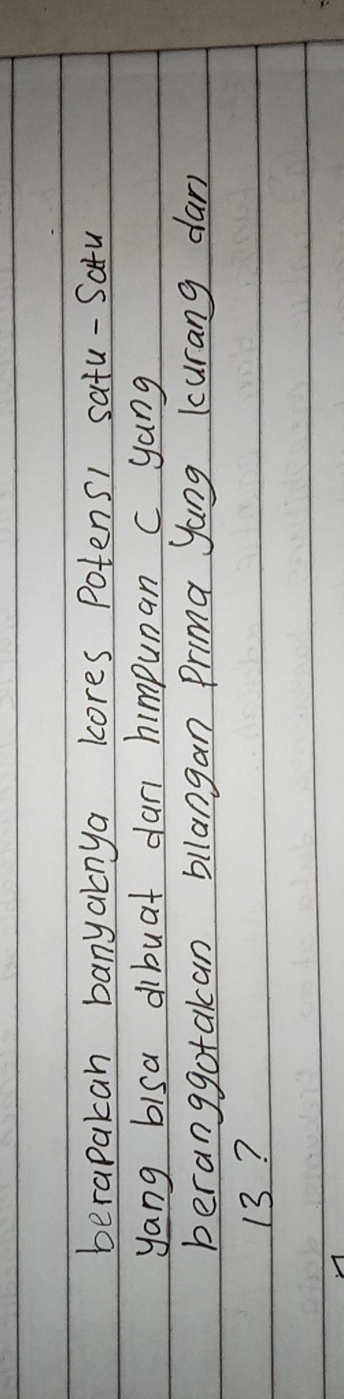 berapakah banyaknya kores Potensi satu - Satu
yang bisa dibuat dari himpunan C yang
beranggotakan bilangan Prima yang kurang dari
13 ?